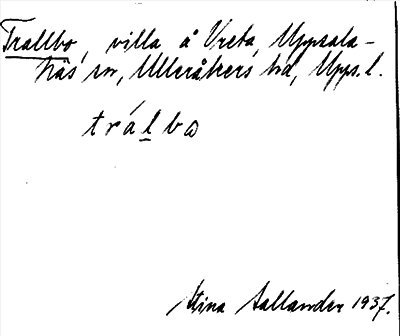 Trallbo, villa å Vreta, Uppsala-
Näs sn, Ulleråkers hd, Upps. l.
trálbo
Stina Sallander 1937.